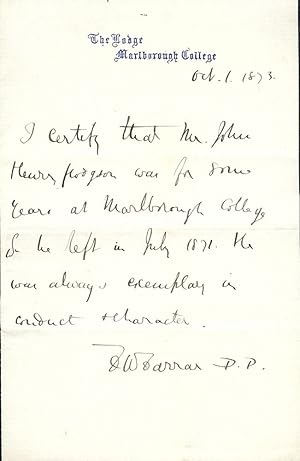 The Lodge
Marlborough College
Oct. 1. 1873.
I certify that Mr. John
Henry Hodgson was for some
years at Marlborough College
& he left in July 1871. He
was always exemplary in
conduct & character.
F W Farrar D.D.